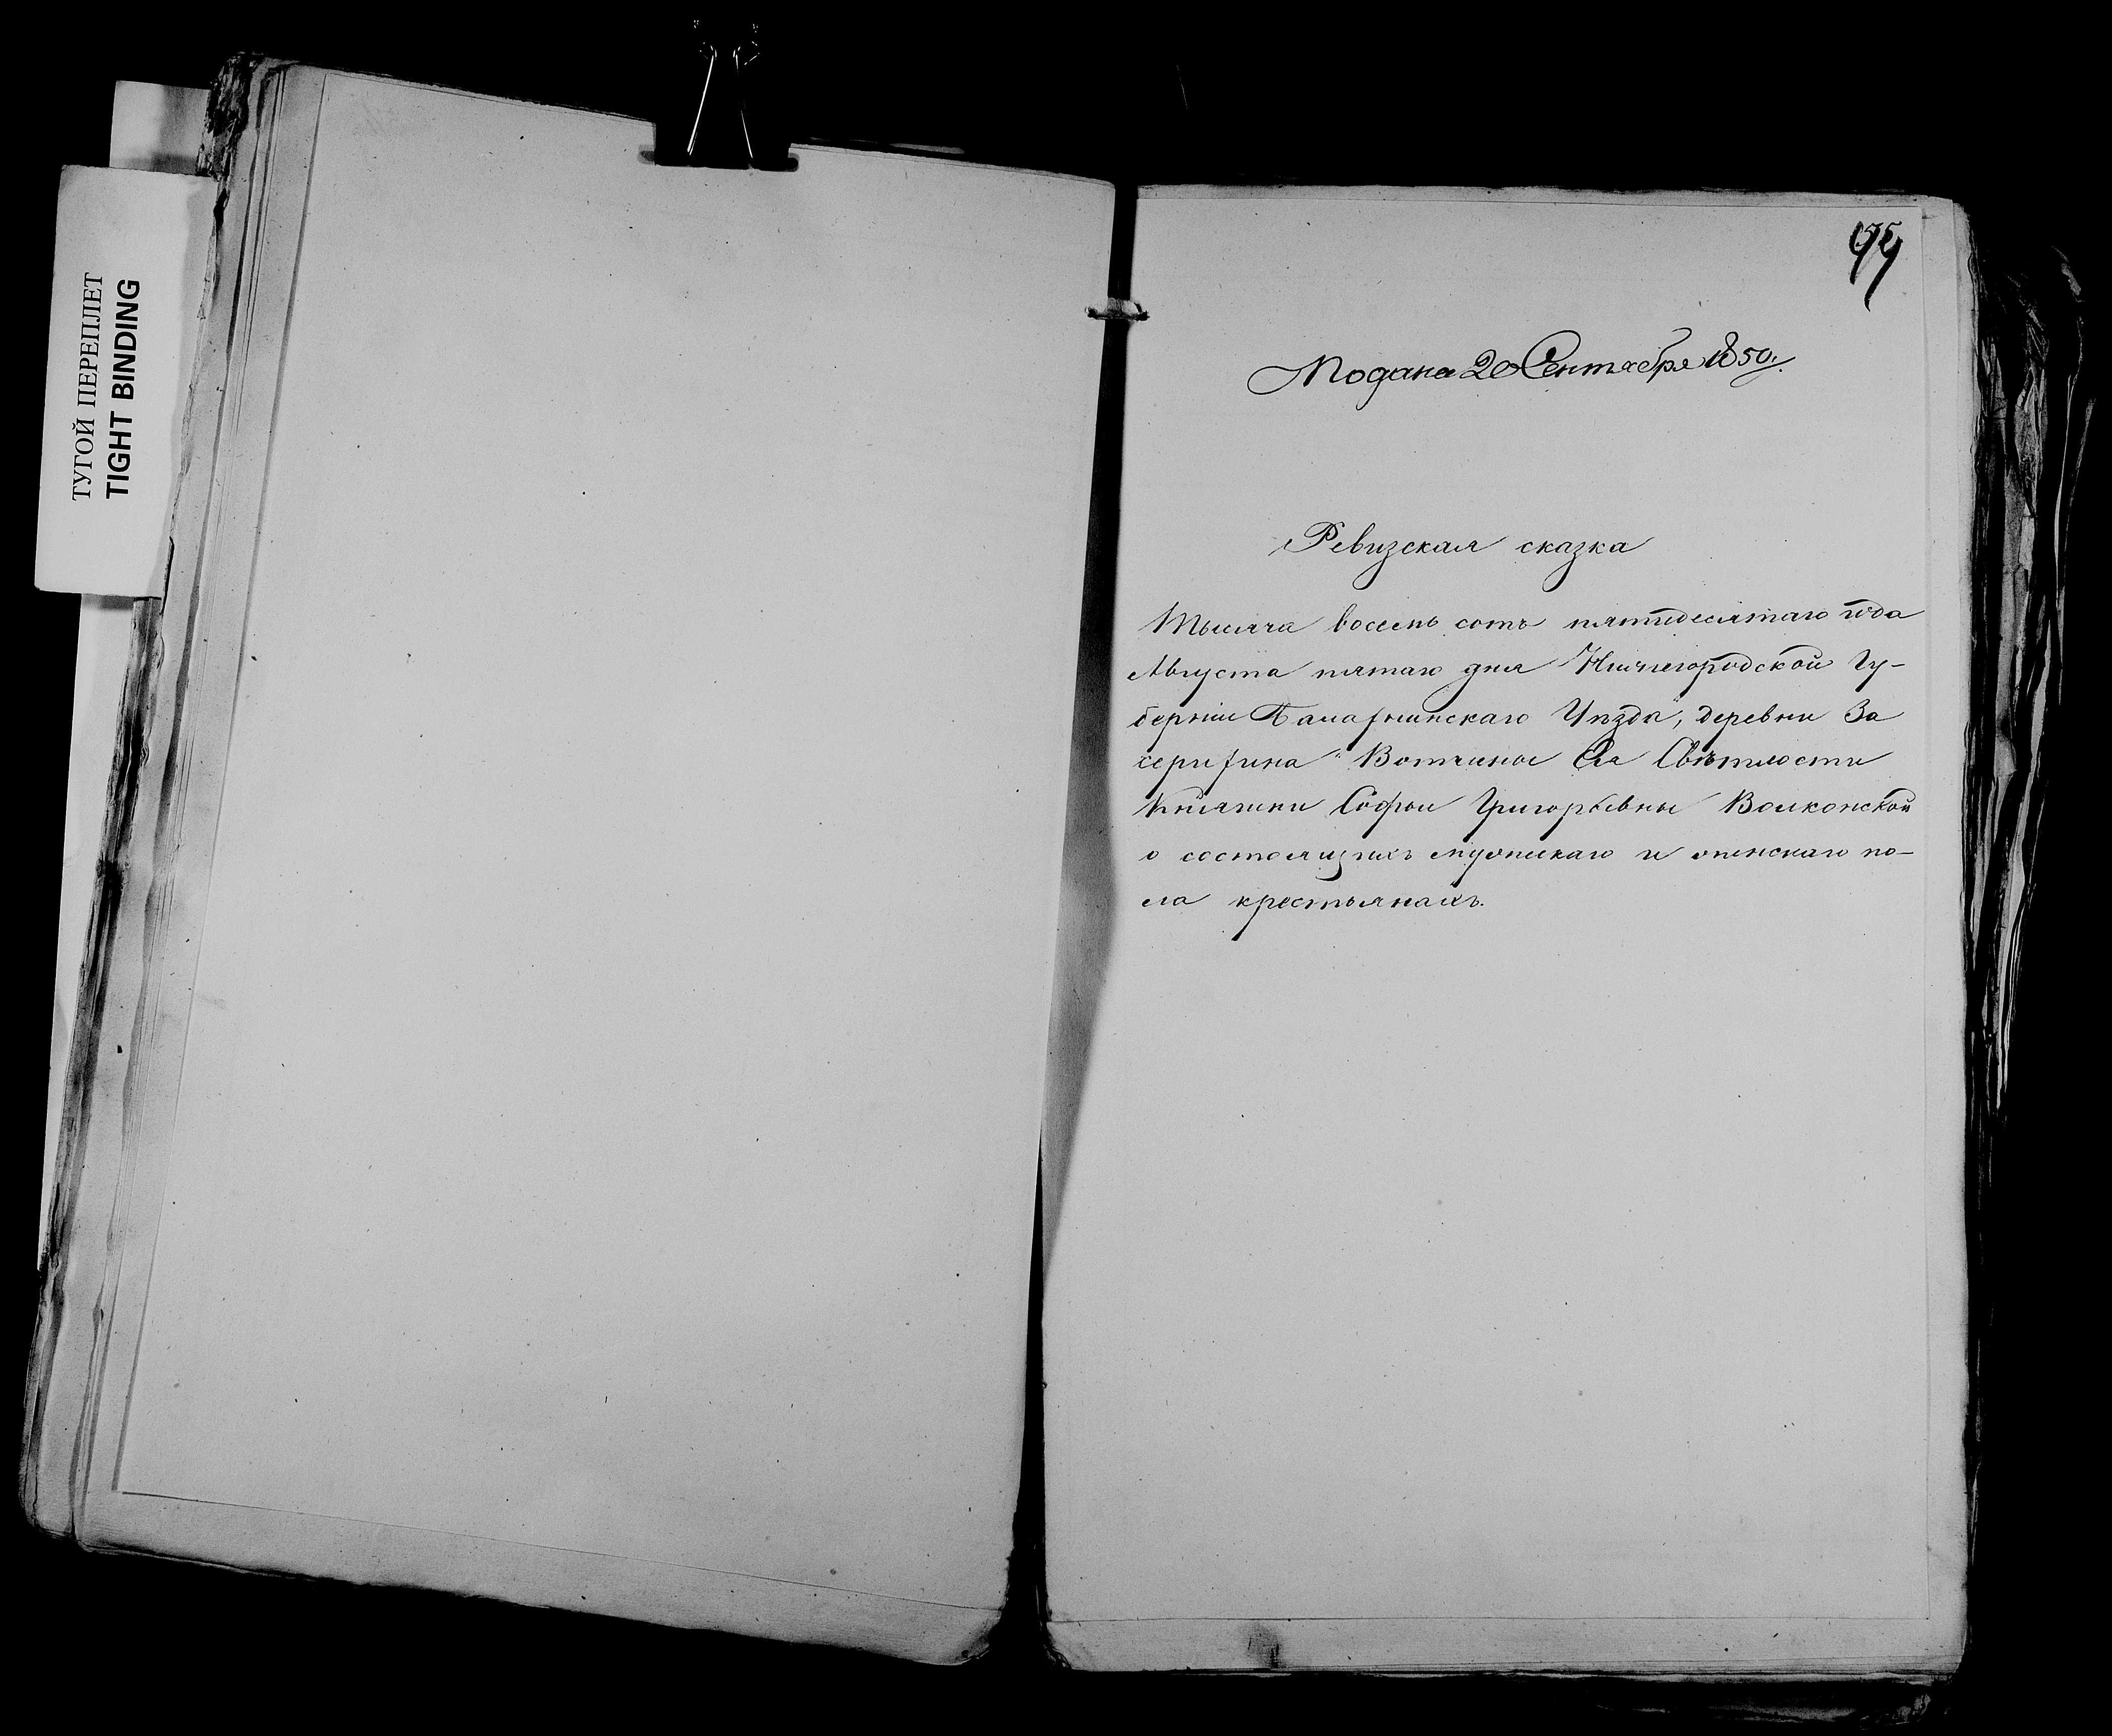 ТУГОЙ ПЕРЕПЛЕТ
TIGHT BINDING
Подана 20 Сентября 1850 г.
Ревизская сказка
Тысяча восемь сотъ пятидесятаго года
Августа пятаго дня Нижегородской Гу-
берніи Балахнинскаго Уѣзда, деревни За
Вотчины Ея Свѣтлости
Княгини Софьи Григорьевны Волконской
о состоящихъ мужескаго и женскаго по-
ла крестьянахъ.